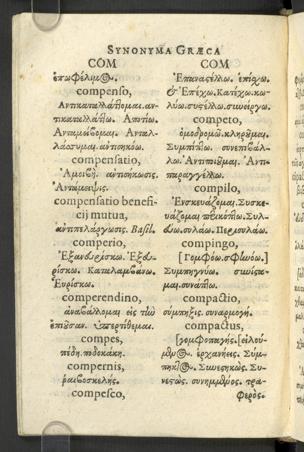 SYNONYMA GRÆCA
COM
ἐπωφέλιμος.
compenso,
Ἀντικαταλλάττομαι. ἀν-
τικαταλλάττω. Ἀντίω.
Ἀνταμείβομαι. Ἀνταλ-
λάσσομαι. ἀντισηκόω.
compensatio,
Ἀμοιβή. ἀντισήκωσις.
Ἀντάμειψις.
compensatio benefi-
cij mutua,
ἀντιπελάργωσις. Basil.
comperio,
Ἐξανευρίσκω. Ἐξευ-
ρίσκω. Καταλαμβάνω.
Εὑρίσκω.
comperendino,
ἀναβάλλομαι εἰς τὴν
ἐπιοῦσαν. ὑπερτίθεμαι.
compes,
πέδη. ποδοκάκη.
compernis,
ῥαιβοσκελής.
compesco,
COM
Ἐπαναστέλλω. ἐπέχω.
& Ἐπέχω. Κατέχω. κω-
λύω. συστέλλω. συνείργω.
competo,
ὁμοδρομῶ. κληροῦμαι.
Συμπίπτω. συνεπιβάλ-
λω. Ἀντιποιοῦμαι. Ἀντι-
παραγγέλλω.
compilo,
Ἐνσκευάζομαι. Συσκε-
υάζομαι πλεικόπτω. Συλ-
άω. συλάω. Περισυλάω.
compingo,
[Γομφόω. σφηνόω.]
Συμπηγνύω. συνίστα-
μαι. συνάπτω.
compactio,
σύμπηξις. συναρμογή.
compactus,
[γομφοπαγής. [εἰλού-
μενος. ἐρχανήεις. Σύμ-
πηκτος. Συνεσηκώς. Συ-
νετώς. συνημμένος. τρα-
φερός.